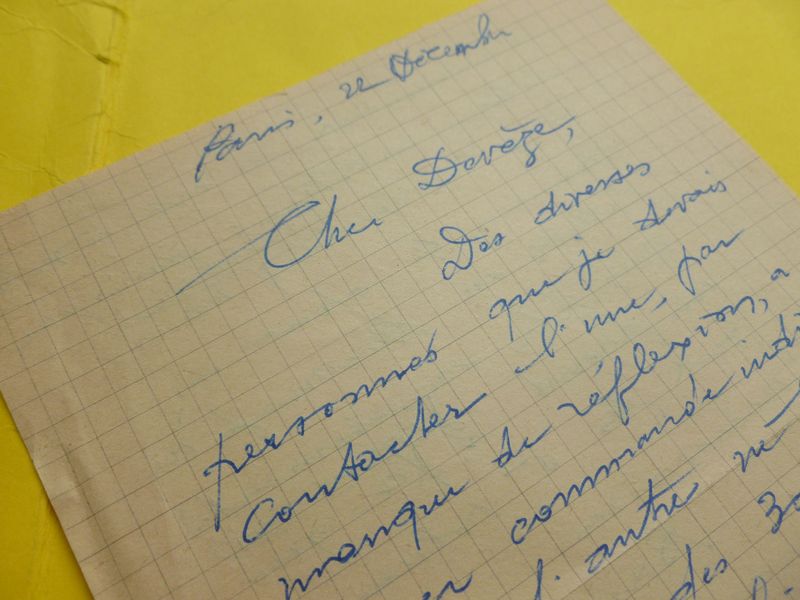 Paris, 22 Décembre
Cher Devèze,
Des diverses
personnes que je devais
contacter l'une, par
manque de réflexion, a
commande
l'autre
des